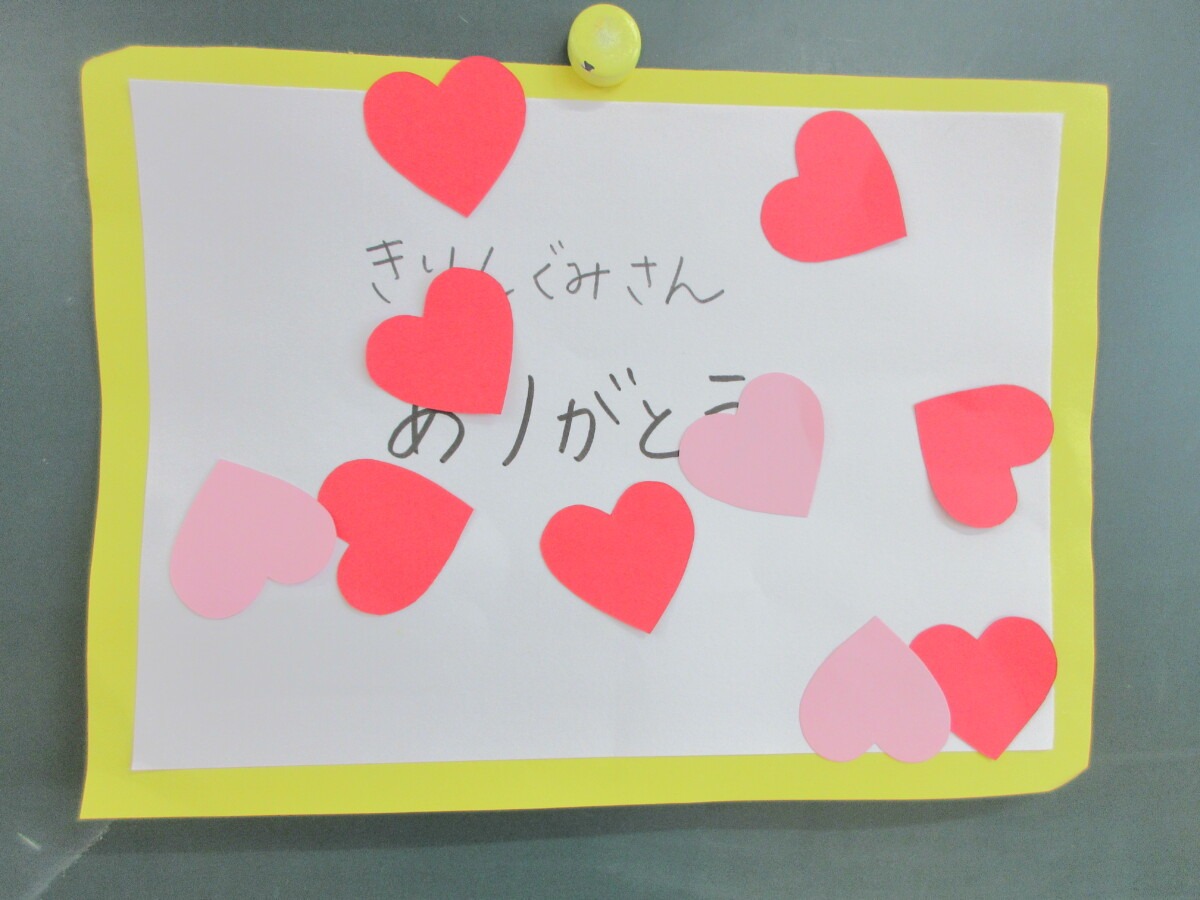 きりんぐみさん
ありがとう